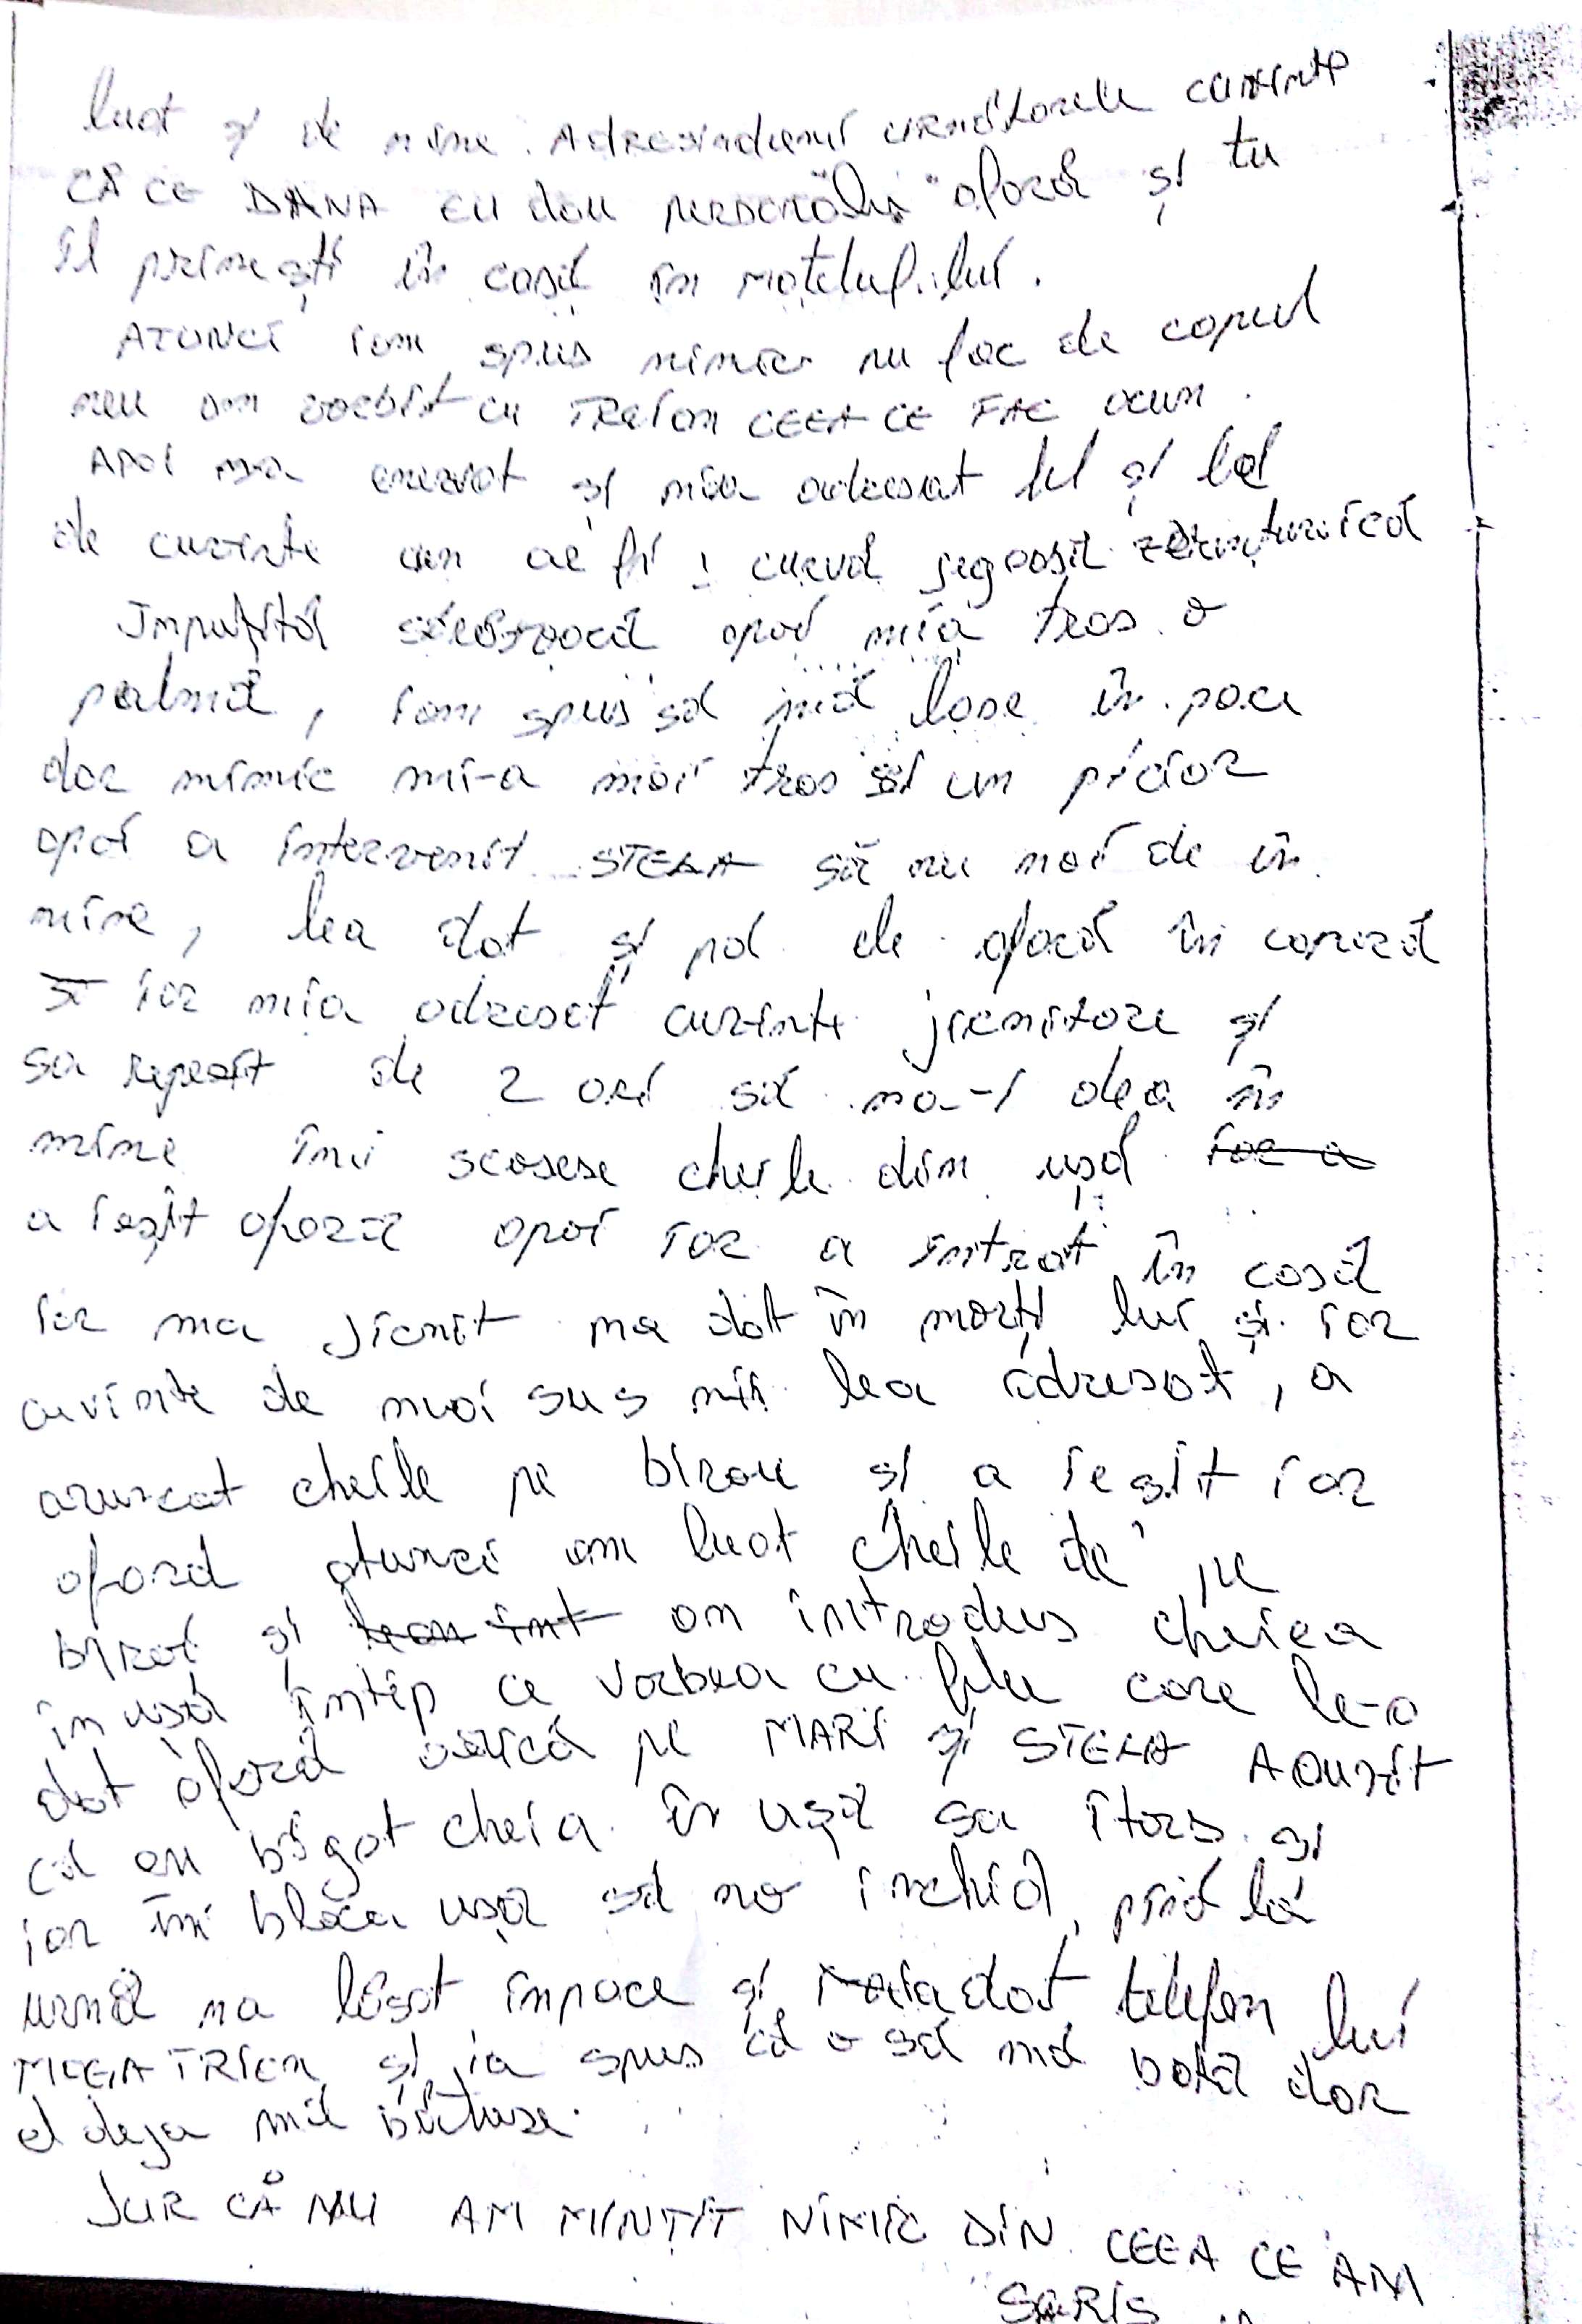 luat și de mine. Adresindumi următorele cuvinte
CĂ CE DANA EU dau personălu afară și tu
îl primești în casă în
ATUNCI iam spus nimic nu fac de capul
meu am vorbit cu TRaian CEEA CE FAC acum.
APOI ma enervat și mia adresat fel și fel
de cuvinte cum ar fi: curvă jegoasă zdrențuroică
Împuțită apoi mia tras o
palmă, iam spus să mă lase în pace
dar nimic mi-a mai tras și un picior
apoi a intervenit STELA să nu mai de în
mine, lea dat și pă ele afară în cameră
iar mia adresat cuvinte jicnitore și
sa repezit de 2 ori să ma-i dea în
mine îmi scosese cheile din ușă iar a
a ieșit afară apoi iar a intrat în casă
iar ma jicnit ma dat în morți lui și iar
cuvinte de mai sus mii lea adresat, a
aruncat cheile pe birou și a ieșit iar
afară atunci am luat cheile de pe
biroi și leam int am introdus cheiea
în ușă întip ce vorbea cu fete care le-a
dat afară adică pe MARI și STELA AOUZIT
că am băgat cheia în ușă sa itors și
iar îmi bloca ușa să no inchid, pînă la
urmă ma lăsat impace și iaia dat telefon lui
și ia spus că o să mă bată dar
el deja mă bătuse.
JUR CĂ NU AM MINȚIT NIMIC DIN CEEA CE AM
SCRIS